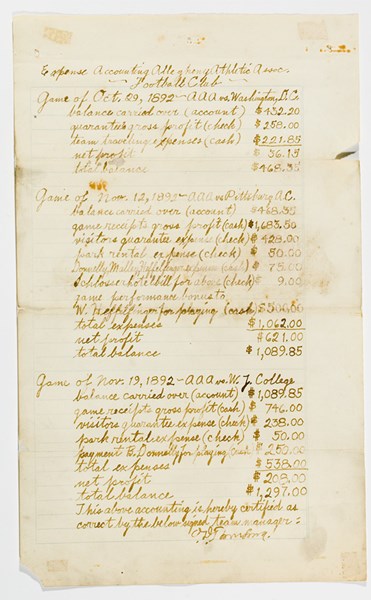 Expense Accounting Allegheny Athletic Assoc.
Football Club
Game of Oct. 29, 1892 - AAA vs. Washington D.C.
balance carried over (account) $432.20
guarantee gross profit (check) $258.00
team traveling expenses (cash) $221.85
net profit $36.15
total balance $468.35
Game of Nov. 12, 1892 - AAA vs Pittsburg A.C.
balance carried over (account) $468.35
game receipts gross profit (cash) $1,683.50
visitors guarantee expense (check) $428.00
park rental expense (check) $50.00
Donnelly, Malley, Heffelfinger expenses (cash) $75.00
Schlosser hotel bill for above (check) $9.00
game performance bonus to
W. Heffelfinger for playing (cash) $500.00
total expenses $1,062.00
net profit $621.00
total balance $1,089.85
Game of Nov. 19, 1892 - AAA vs. W. J. College
balance carried over (account) $1,089.85
game receipts gross profit (cash) $746.00
visitors guarantee expense (check) $238.00
park rental expense (check) $50.00
payment B. Donnelly for playing (cash) $250.00
total expenses $538.00
net profit $208.00
total balance $1,297.00
This above accounting is hereby certified as
correct by the below signed team manager: